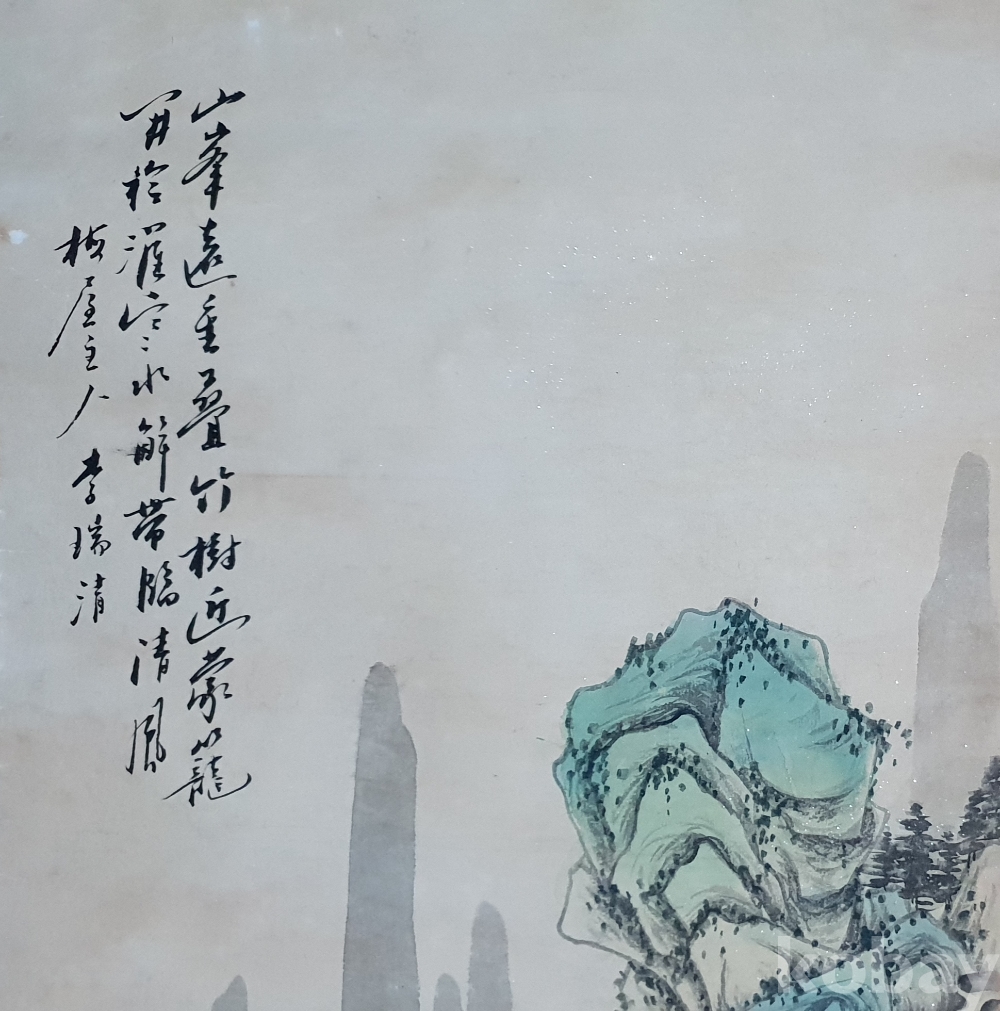 山峯遠重疊竹樹近蒙籠
開衿濯寒水解帶臨清風
梅屋主人 李瑞清
kobay